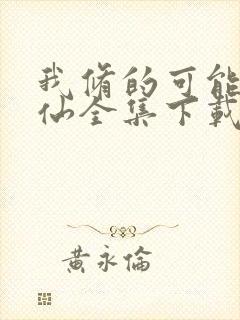 我脩的可能
仙全集下載
黃永倫